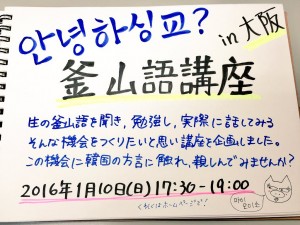 안녕하싱교?
in 大阪
釜山語講座
生の釜山語を聞き，勉強し，実際に話してみる
そんな機会をつくりたいと思い講座を企画しました。
この機会に韓国の方言に触れ，親しんでみませんか？
2016年1月10日(日) 17:30-19:00
くわしくはホームページを！